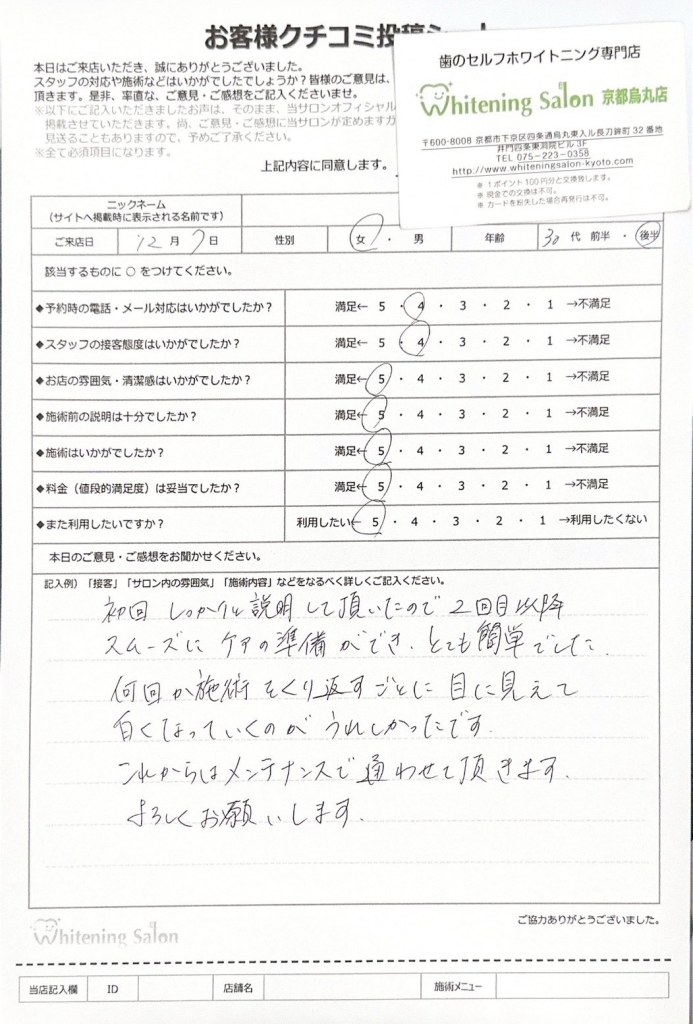 お客様クチコミ投稿シート
本日はご来店いただき、誠にありがとうございました。
スタッフの対応や施術などはいかがでしたでしょうか?皆様のご意見は、
頂きます。是非、率直な、ご意見・ご感想をご記入くださいませ。
※以下にご記入いただきましたお声は、そのまま、当サロンオフィシャル
掲載させていただきます。尚、ご意見・ご感想に当サロンが定めますガ
見送ることもありますので、予めご了承ください。
※全て必須項目になります。
上記内容に同意します。
歯のセルフホワイトニング専門店
Whitening Salon 京都烏丸店
〒600-8008 京都市下京区四条通烏丸東入ル長刀鉾町 32 番地
井門四条東洞院ビル 3F
TEL 075-223-0358
http://www.whiteningsalon-kyoto.com
※ 1ポイント100円分と交換致します。
※ 現金での交換は不可。
※ カードを紛失した場合再発行は不可。
ニックネーム
(サイトへ掲載時に表示される名前です)
ご来店日 12月7日 性別 女・男 年齢 30代 前半・後半
該当するものに ○ をつけてください。
◆予約時の電話・メール対応はいかがでしたか? 満足← 5・4・3・2・1 →不満足
◆スタッフの接客態度はいかがでしたか? 満足← 5・4・3・2・1 →不満足
◆お店の雰囲気・清潔感はいかがでしたか? 満足← 5・4・3・2・1 →不満足
◆施術前の説明は十分でしたか? 満足← 5・4・3・2・1 →不満足
◆施術はいかがでしたか? 満足← 5・4・3・2・1 →不満足
◆料金(値段的満足度)は妥当でしたか? 満足← 5・4・3・2・1 →不満足
◆また利用したいですか? 利用したい← 5・4・3・2・1 →利用したくない
本日のご意見・ご感想をお聞かせください。
記入例)「接客」「サロン内の雰囲気」「施術内容」などをなるべく詳しくご記入ください。
初回 しっかりと説明して頂いたので2回目以降
スムーズに ケアの準備ができ、とても簡単でした。
何回か施術をくり返すごとに 目に見えて
白くなっていくのが うれしかったです。
これからはメンテナンスで通わせて頂きます。
よろしくお願いします。
ご協力ありがとうございました。
Whitening Salon
当店記入欄 ID 店舗名 施術メニュー